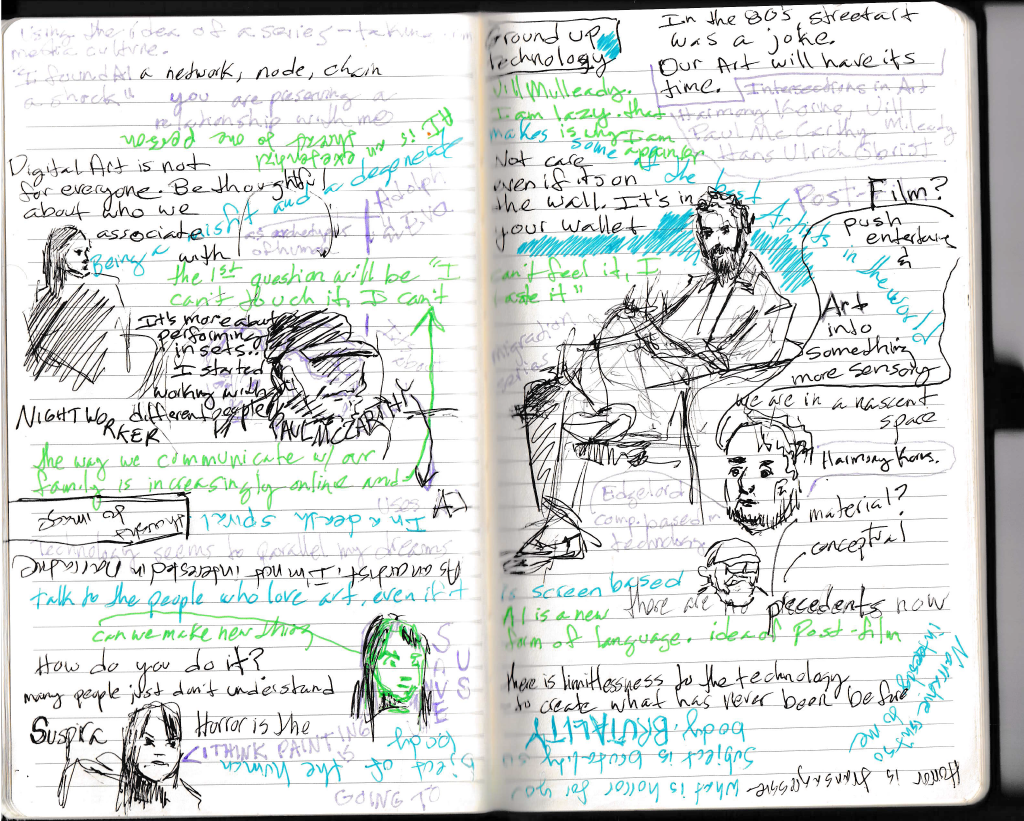 Using the idea of a series-
culture.
"I found AI a network, node, chain
a shock"
you are preserving a
relationship with me
AI is an
exeternized
shared go one person
Digital Art is not
for everyone. Be thoughtful
about who we
associate
with
Being a misfit and a degenerate
as archetypes
of human
the 1st question will be "I
can't touch it, I can't
It's more about
performing
in sets..
I started
working with
different people
NIGHTWORKER
PAUL MCCARTHY
the way we communicate w/ our
family is increasingly online and
AI
uses
In a death spiral
thought
to image
technology seems to parallel my dreams
As an artist, I'm not interested in narrative
talk to the people who love art, even if it
can we make new thing
How do you do it?
many people just don't understand
SAVE
US
Suspira
Horror is the
I THINK PAINTING
IS
GOING TO
body
bject of the human
Ground up
technology
In the 80's, street art
was a joke.
Our Art will have its
time.
Intersections in Art
Harmony Korine, Jill
Paul McCarthy Mulleady
Hans Ulrich Obrist
Jill Mulleady.
I am lazy. that
makes is why I am
a painter
some of the best Artists in the world
Not care
even if its on
the wall. It's in
your wallet
Post-Film?
push
entertaine
&
Art
into
something
more sensory
can't feel it, I
taste it"
migration
series
we are in a nascent
space
Harmony Korine.
Edgelord
comp. based
technology
material?
conceptual
is screen based
AI is a new
form of language. idea of Post-film
there are no precedents now
there is limitlessness to the technology
to create what has never been before
Narrative isn't so
interesting to me
body. BRUTALITY
Subject is brutality
What is horror for you
Horror is transgressive